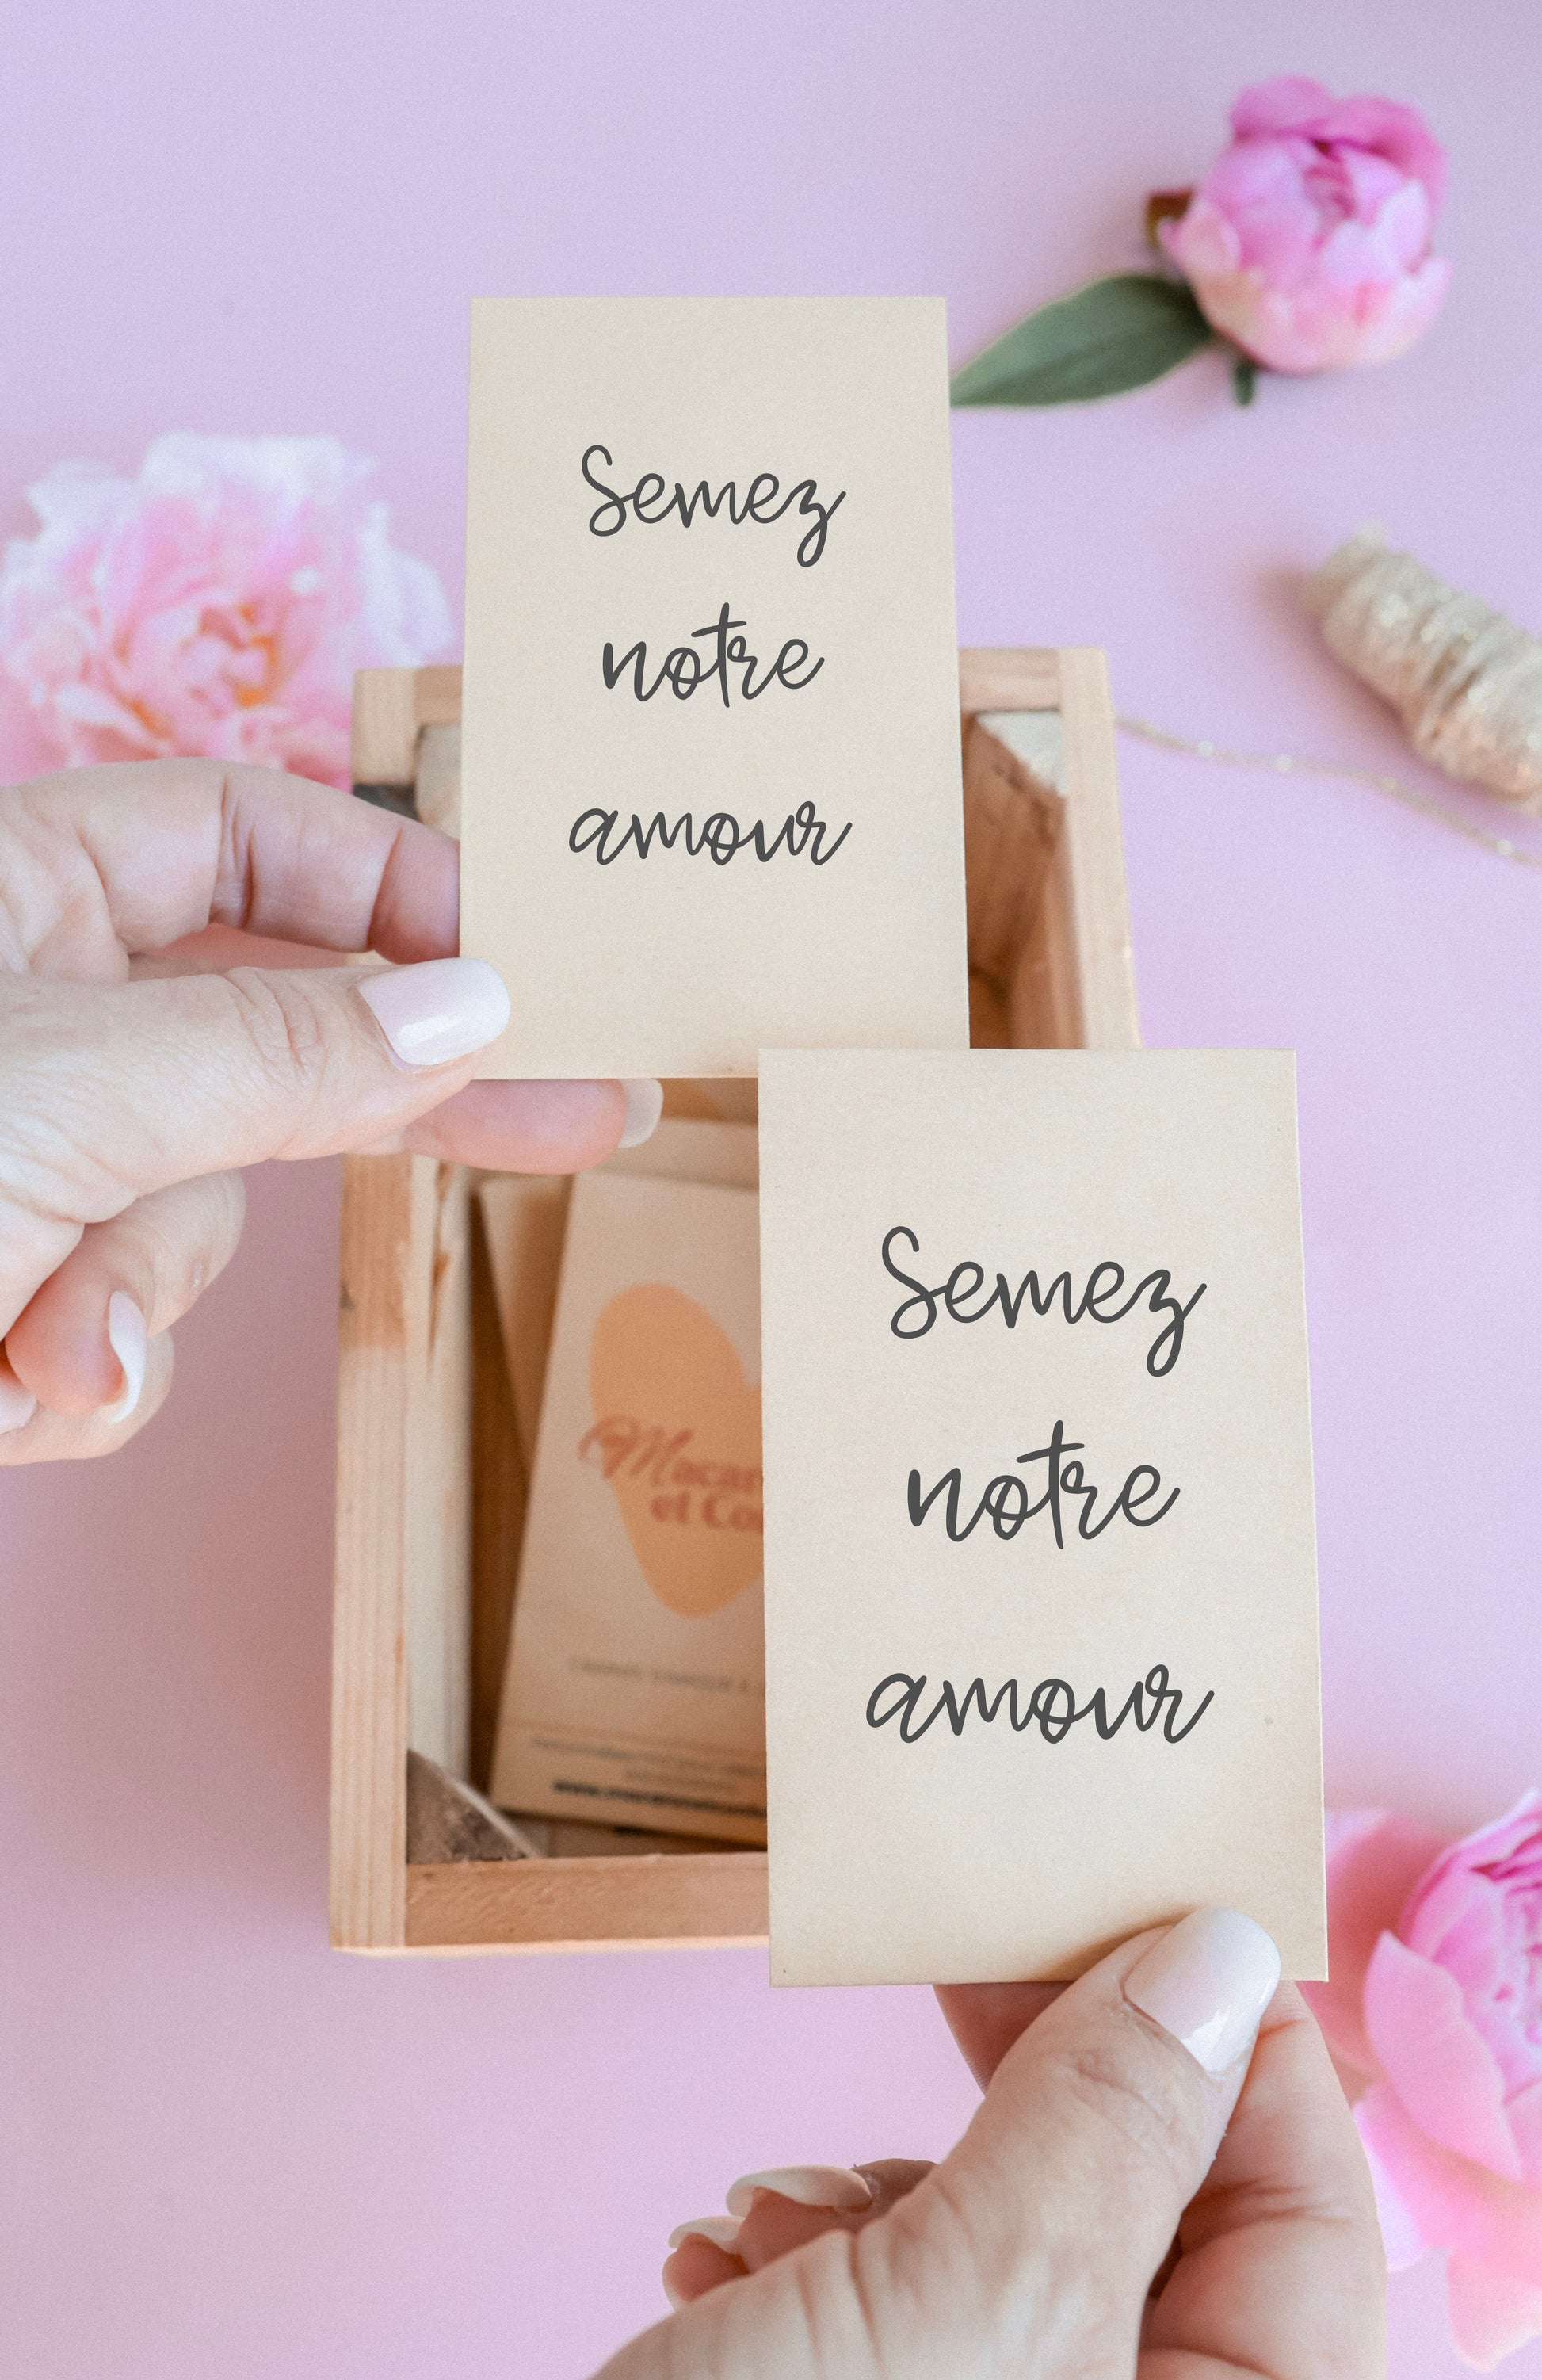 Semez
notre
amour
Semez
notre
amour
et